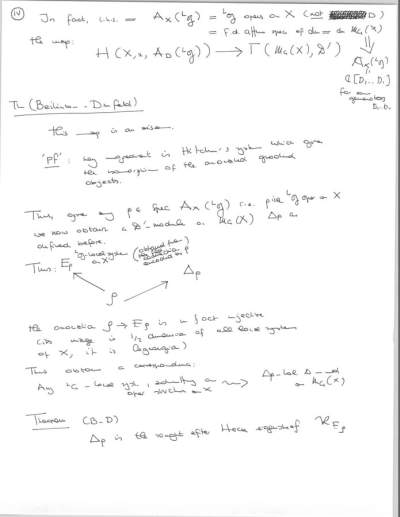 (iv) In fact, L.H.S = A_X(ᴸg) = ᴸg opers on X (not D)
= f.d. affine space of dim = dim M_G(X)
the map: H(X, x, A_D(ᴸg)) → Γ(M_G(X), D')
A_X(ᴸg)
ℂ[D_1 ... D_r]
for some generators D_1..D_r
Th (Beilinson - Drinfeld)
this map is an isom.
'Pf': key ingredient is Hitchin's system which gives
the isomorphism of the associated graded
objects.
Thus, given any ρ ∈ Spec A_X(ᴸg) i.e. pick ᴸg oper on X
we now obtain a D'-module on M_G(X) Δ_ρ as
defined before.
Thus: E_ρ on X
Δ_ρ
ρ
the association ρ → E_ρ is in fact injective
(its image is 1/2 dimension of all local systems
of X, it is Lagrangian)
Thus obtain a correspondence:
Any ᴸG - local syst, admitting an oper structure on X ⇝ Δ_ρ - D - mod on M_G(X)
Theorem (B-D)
Δ_ρ is the sought after Hecke eigensheaf